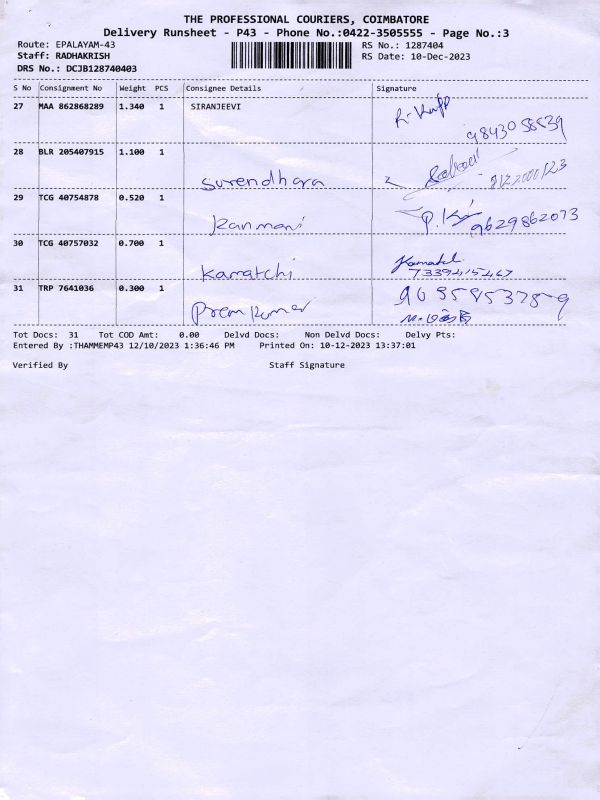 THE PROFESSIONAL COURIERS, COIMBATORE
Delivery Runsheet - P43 - Phone No.:0422-3505555 - Page No.:3
Route: EPALAYAM-43 RS No.: 1287404
Staff: RADHAKRISH RS Date: 10-Dec-2023
DRS No.: DCJB128740403
S No Consignment No Weight PCS Consignee Details Signature
27 MAA 862868289 1.340 1 SIRANJEEVI
28 BLR 205407915 1.100 1
Surendhara
29 TCG 40754878 0.520 1
Kanmani 9629862073
30 TCG 40757032 0.700 1
Kamatchi
31 TRP 7641036 0.300 1
Prem Kumar
Tot Docs: 31 Tot COD Amt: 0.00 Delvd Docs: Non Delvd Docs: Delvy Pts:
Entered By :THAMMEMP43 12/10/2023 1:36:46 PM Printed On: 10-12-2023 13:37:01
Verified By Staff Signature